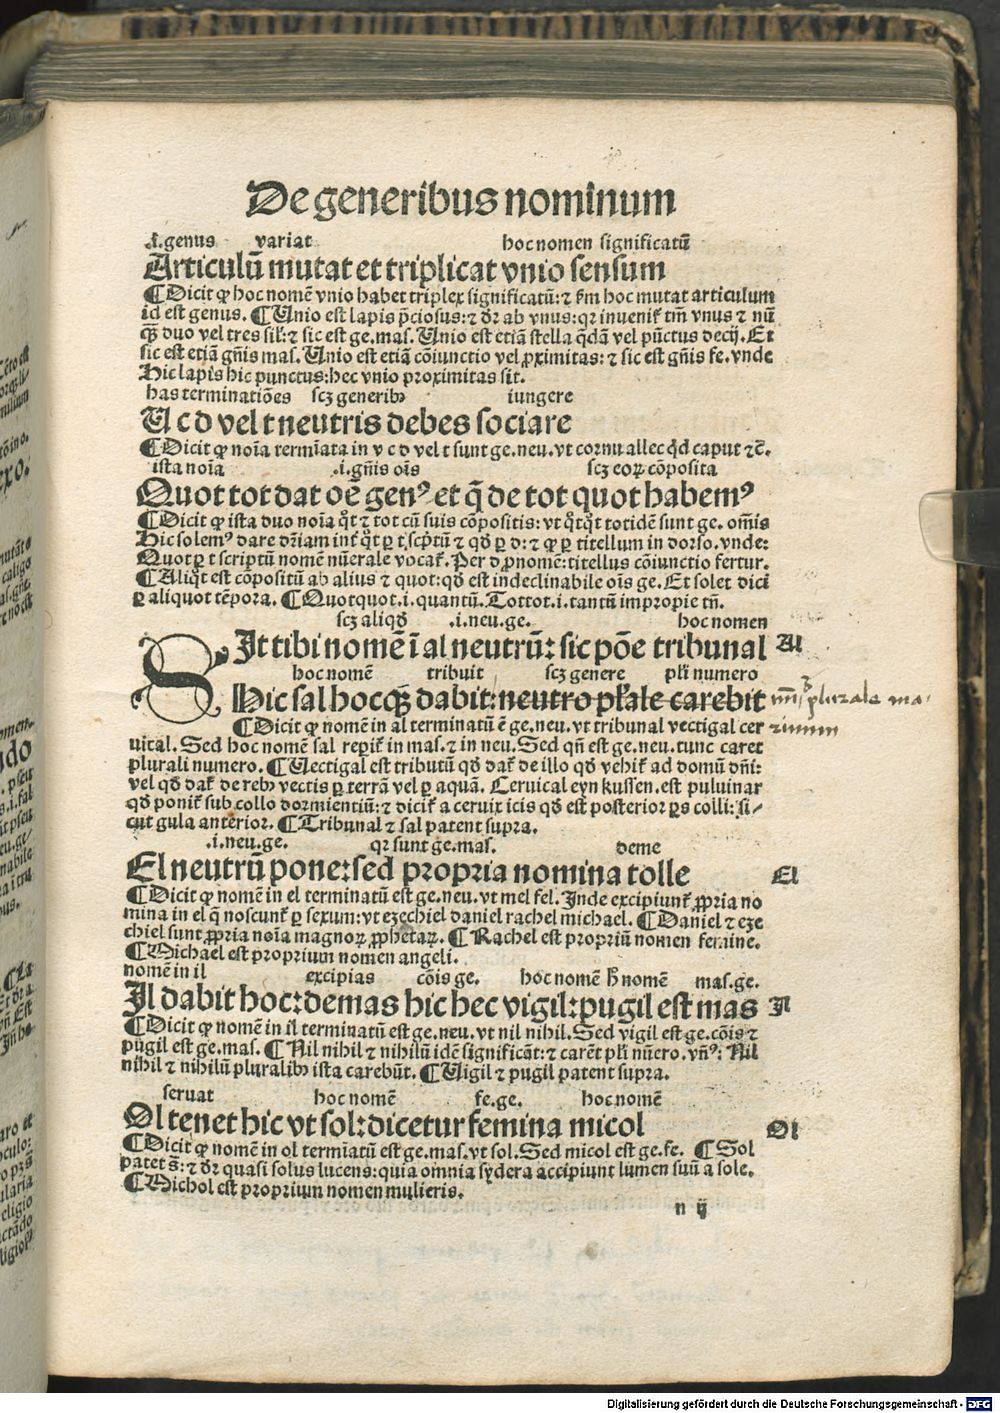 De generibus nominum
.i. genus variat hoc nomen significatū
Articulū mutat et triplicat vnio sensum
¶ Dicit ꝙ hoc nomē vnio habet triplex significatū: ⁊ s̄m hoc mutat articulum
id est genus. ¶ Unio est lapis p̄ciosus: ⁊ dr̄ ab vnus: qr inuenit᷑ tm̄ vnus ⁊ nū
qꝫ duo vel tres sil᷑: ⁊ sic est ge. mas. Unio est etiā stella q̄dā vel pūctus decij. Et
sic est etiā gn̄is mas. Unio est etiā cōiunctio vel ꝓximitas: ⁊ sic est gn̄is fe. vnde
Hic lapis hic punctus: hec vnio proximitas sit.
has terminatiōes scꝫ generibꝰ iungere
U c d vel t neutris debes sociare
¶ Dicit ꝙ noīa termīata in v c d vel t sunt ge. neu. vt cornu allec qd̄ caput ⁊c̄.
ista noīa .i. gn̄is oīs scꝫ eoꝝ cōposita
Quot tot dat oē genꝰ et q̄ de tot quot habemꝰ
¶ Dicit ꝙ ista duo noīa q̊t ⁊ tot cū suis cōpositis: vt q̊tq̊t totidē sunt ge. om̄is
Hic solemꝰ dare dr̄iam int᷑ q̊t ꝑ t sc̄ptū ⁊ qd̄ ꝑ d: ⁊ ꝙ ꝑ titellum in dorso. vnde:
Quot ꝑ t scriptū nomē nūerale vocat᷑. Per d ꝓnomē: titellus cōiunctio fertur.
¶ Aliq̊t est cōpositū ab alius ⁊ quot: qd̄ est indeclinabile oīs ge. Et solet dici
ꝑ aliquot tēpora. ¶ Quotquot .i. quantū. Tottot .i. tantū impropie tn̄.
scꝫ aliqd̄ .i. neu. ge. hoc nomen
Sit tibi nomē ī al neutrū: sic pōe tribunal Al
hoc nomē tribuit scꝫ genere pl᷑i numero
Hic sal hocqꝫ dabit: neutro pl᷑ale carebit
¶ Dicit ꝙ nomē in al terminatū ē ge. neu. vt tribunal vectigal cer
uical. Sed hoc nomē sal repit᷑ in mas. ⁊ in neu. Sed qn̄ est ge. neu. tunc caret
plurali numero. ¶ Uectigal est tributū qd̄ dat᷑ de illo qd̄ vehit᷑ ad domū dn̄i:
vel qd̄ dat᷑ de rebꝰ vectis ꝑ terrā vel ꝑ aquā. Ceruical eyn kussen. est puluinar
qd̄ ponit᷑ sub collo dormientiū: ⁊ dicit᷑ a ceruix icis qd̄ est posterior ꝑs colli: si⸗
cut gula anterior. ¶ Tribunal ⁊ sal patent supra.
.i. neu. ge. qr sunt ge. mas. deme
El neutrū pone: sed propria nomina tolle El
¶ Dicit ꝙ nomē in el terminatū est ge. neu. vt mel fel. Inde excipiunt᷑ ꝓpria no
mina in el q̄ noscunt᷑ ꝑ sexum: vt ezechiel daniel rachel michael. ¶ Daniel ⁊ eze
chiel sunt ꝓpria noīa magnoꝝ ꝓphetaꝝ. ¶ Rachel est propriū nomen femine.
¶ Michael est proprium nomen angeli.
nomē in il excipias cōis ge. hoc nomē h̄ nomē mas. ge.
Il dabit hoc: demas hic hec vigil: pugil est mas Il
¶ Dicit ꝙ nomē in il terminatū est ge. neu. vt nil nihil. Sed vigil est ge. cōis ⁊
pugil est ge. mas. ¶ Nil nihil ⁊ nihilū idē significāt: ⁊ carēt pl᷑i nūero. vn̄ꝰ: Nil
nihil ⁊ nihilū pluralibꝰ ista carebūt. ¶ Uigil ⁊ pugil patent supra.
seruat hoc nomē fe. ge. hoc nomē
Ol tenet hic vt sol: dicetur femina micol Ol
¶ Dicit ꝙ nomē in ol termīatū est ge. mas. vt sol. Sed micol est ge. fe. ¶ Sol
patet s̄: ⁊ dr̄ quasi solus lucens: quia omnia sydera accipiunt lumen suū a sole.
¶ Michol est proprium nomen mulieris.
n ij
Digitalisierung gefördert durch die Deutsche Forschungsgemeinschaft - DFG